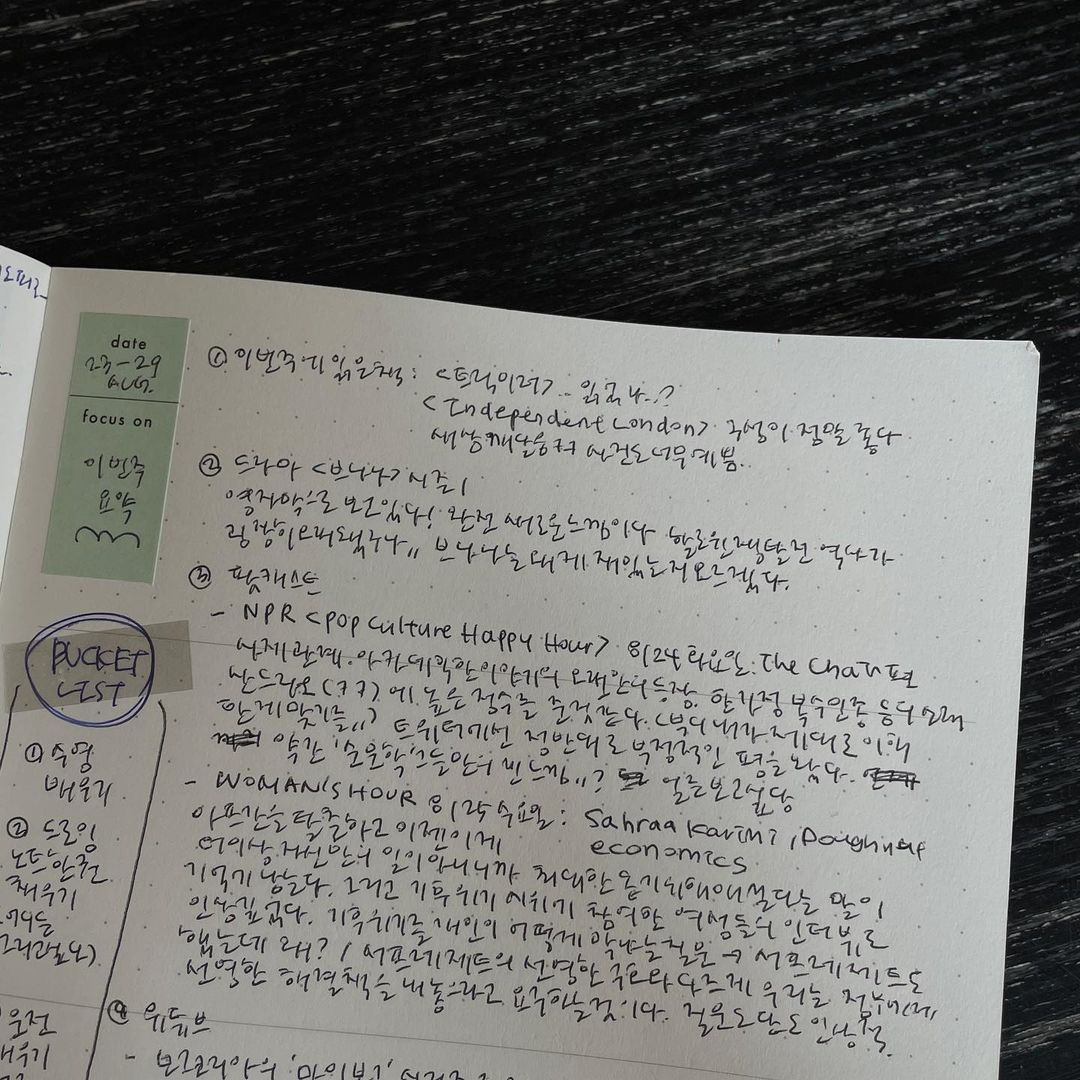 date
23-29
AUG.
focus on
이번주
요약
① 이번주에 읽은책: <트릭미러>.. 읽구나..?
<Independent London> 구성이 정말 좋다
새삼깨달음ㅋㅋ 사진도너무예쁨.
② 드라마 <브나나> 시즌1
영자막으로 보고있다! 완전 새로운느낌이다 할로윈
굉장히오래됐구나,, 브나나는 왜케 재밌는지모르겠다.
③ 팟캐스트
- NPR <pop culture Happy Hour> 8/24 화요일: The Chair 편
사제관계. 아카데믹한이야기와 오랜만의등장. 한가정 복수인종 등의
산드라오(ㅋㅋ)에 높은 점수를 준것같다. (부디 내가 제대로 이해
한게 맞기를,,) 트위터에선 정반대로 부정적인 평을 봤다.
약간 느낌..? 얼른보고싶당
- WOMAN'S HOUR 8/25 수요일: Sahraa Karimi, Doughnut
economics
아프간을 탈출하고 이젠이게
더이상 자신만의 일이아니니까 최대한 돕기위해애쓸다는 말이
기억기남는다. 그리고 기후위기 시위기 참여한 여성들의 인터뷰로
인상깊었다. 기후위기를 개인이 어떻게 막냐는질문 → 서프레제트도
했는데 왜? / 서프레제트의 선명한 구호와 다르게 우리는 정부에게
선명한 해결책을 내놓으라고 요구하는것이다. 질문도답도인상적.
④ 유튜브
- 보그코리아의
BUCKET
LIST
① 수영
배우기
② 드로잉
노트 한권
채우기
운전
배우기